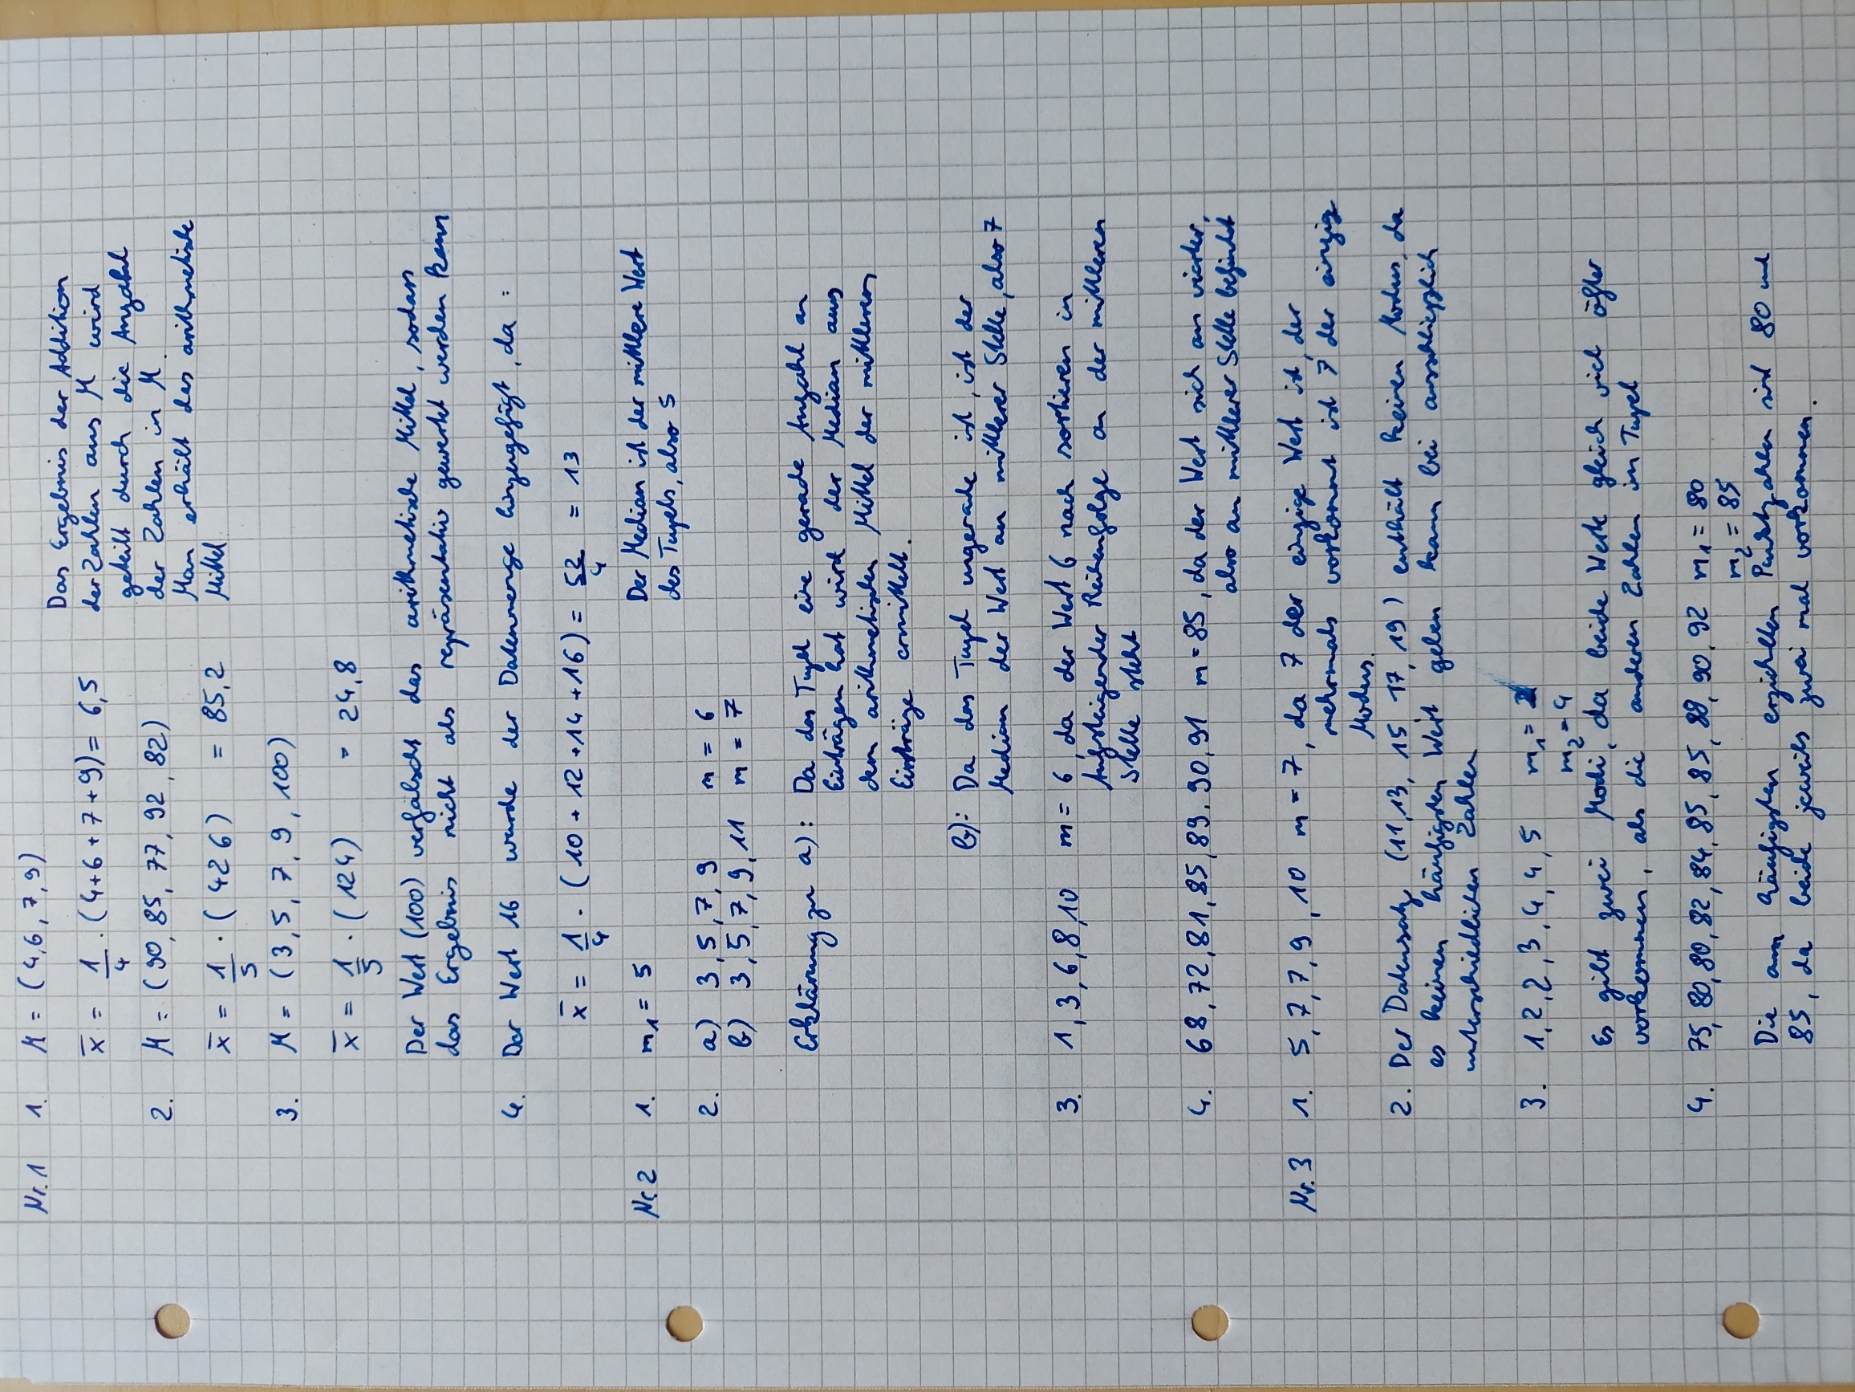 Nr. 1 1. M = (4,6, 7, 9)
x̄ = 1/4 · (4+6+7+9) = 6,5
Das Ergebnis der Addition
der Zahlen aus M wird
geteilt durch die Anzahl
der Zahlen in M.
Man erhält das arithmetische
Mittel
2. M = (90, 85, 77, 92, 82)
x̄ = 1/5 · (426) = 85,2
3. M = (3, 5, 7, 9, 100)
x̄ = 1/5 · (124) = 24,8
Der Wert (100) verfälscht das arithmetische Mittel, sodass
das Ergebnis nicht als repräsentativ gewertet werden kann
4. Der Wert 16 wurde der Datenmenge hinzugefügt, da :
x̄ = 1/4 · (10 + 12 + 14 + 16) = 52/4 = 13
Nr. 2 1. m₁ = 5
Der Median ist der mittlere Wert
des Tupels, also 5
2. a) 3, 5, 7, 9 m = 6
b) 3, 5, 7, 9, 11 m = 7
Erklärung zu a): Da das Tupel eine gerade Anzahl an
Einträgen hat wird der Median aus
dem arithmetischen Mittel der mittleren
Einträge ermittelt.
b): Da das Tupel ungerade ist, ist der
Median der Wert an mittlerer Stelle, also 7
3. 1, 3, 6, 8, 10 m = 6, da der Wert 6 nach sortieren in
Aufsteigender Reihenfolge an der mittleren
Stelle steht
4. 68, 72, 81, 85, 89, 90, 91 m = 85, da der Wert sich an vierter,
also an mittlerer Stelle befindet
Nr. 3 1. 5, 7, 7, 9, 10 m = 7, da 7 der einzige Wert ist, der
mehrmals vorkommt ist 7 der einzig
Modus.
2. Der Datensatz (11, 13, 15, 17, 19) enthält keinen Modus, da
es keinen häufigsten Wert geben kann bei ausschließlich
unterschiedlichen Zahlen
3. 1, 2, 2, 3, 4, 4, 5 m₁ = 2
m₂ = 4
Es gibt zwei Modi, da beide Werte gleich viel öfter
vorkommen, als die anderen Zahlen im Tupel
4. 75, 80, 80, 82, 84, 85, 85, 88, 90, 92 m₁ = 80
m₂ = 85
Die am häufigsten erzielten Punktzahlen sind 80 und
85, da beide jeweils zwei mal vorkommen.